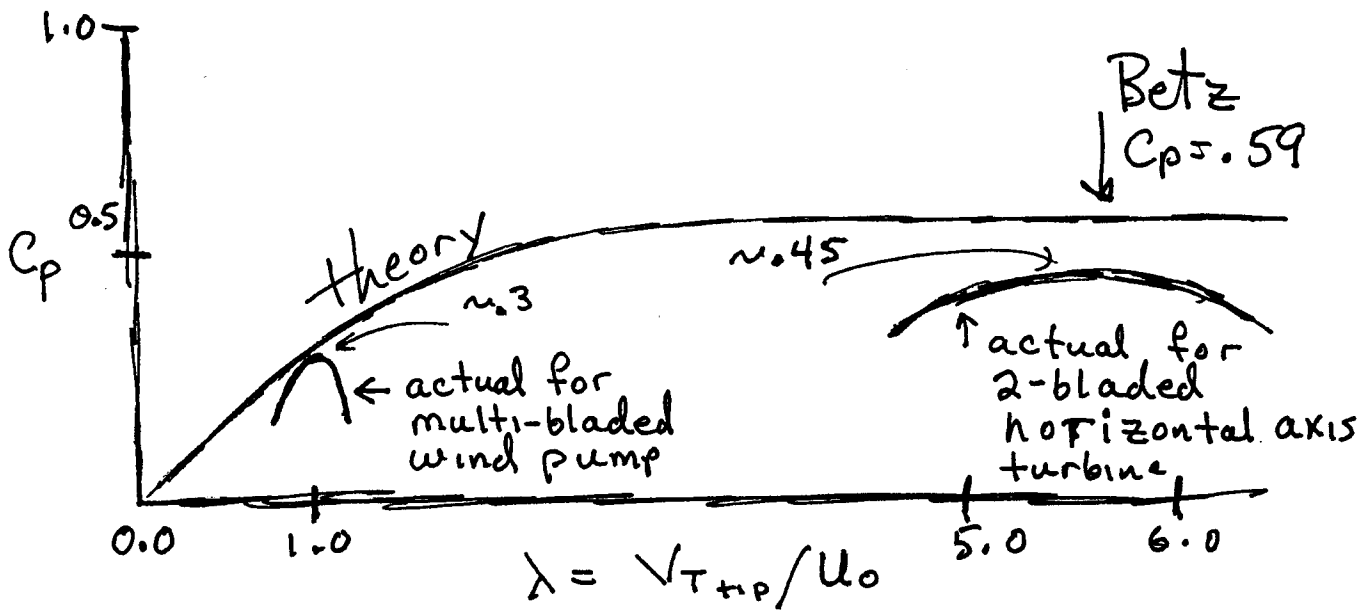 1.0
Betz
Cp = .59
0.5
Cp
theory
~.45
~.3
actual for
multi-bladed
wind pump
actual for
2-bladed
horizontal axis
turbine
0.0 1.0 5.0 6.0
λ = VT tip/U0